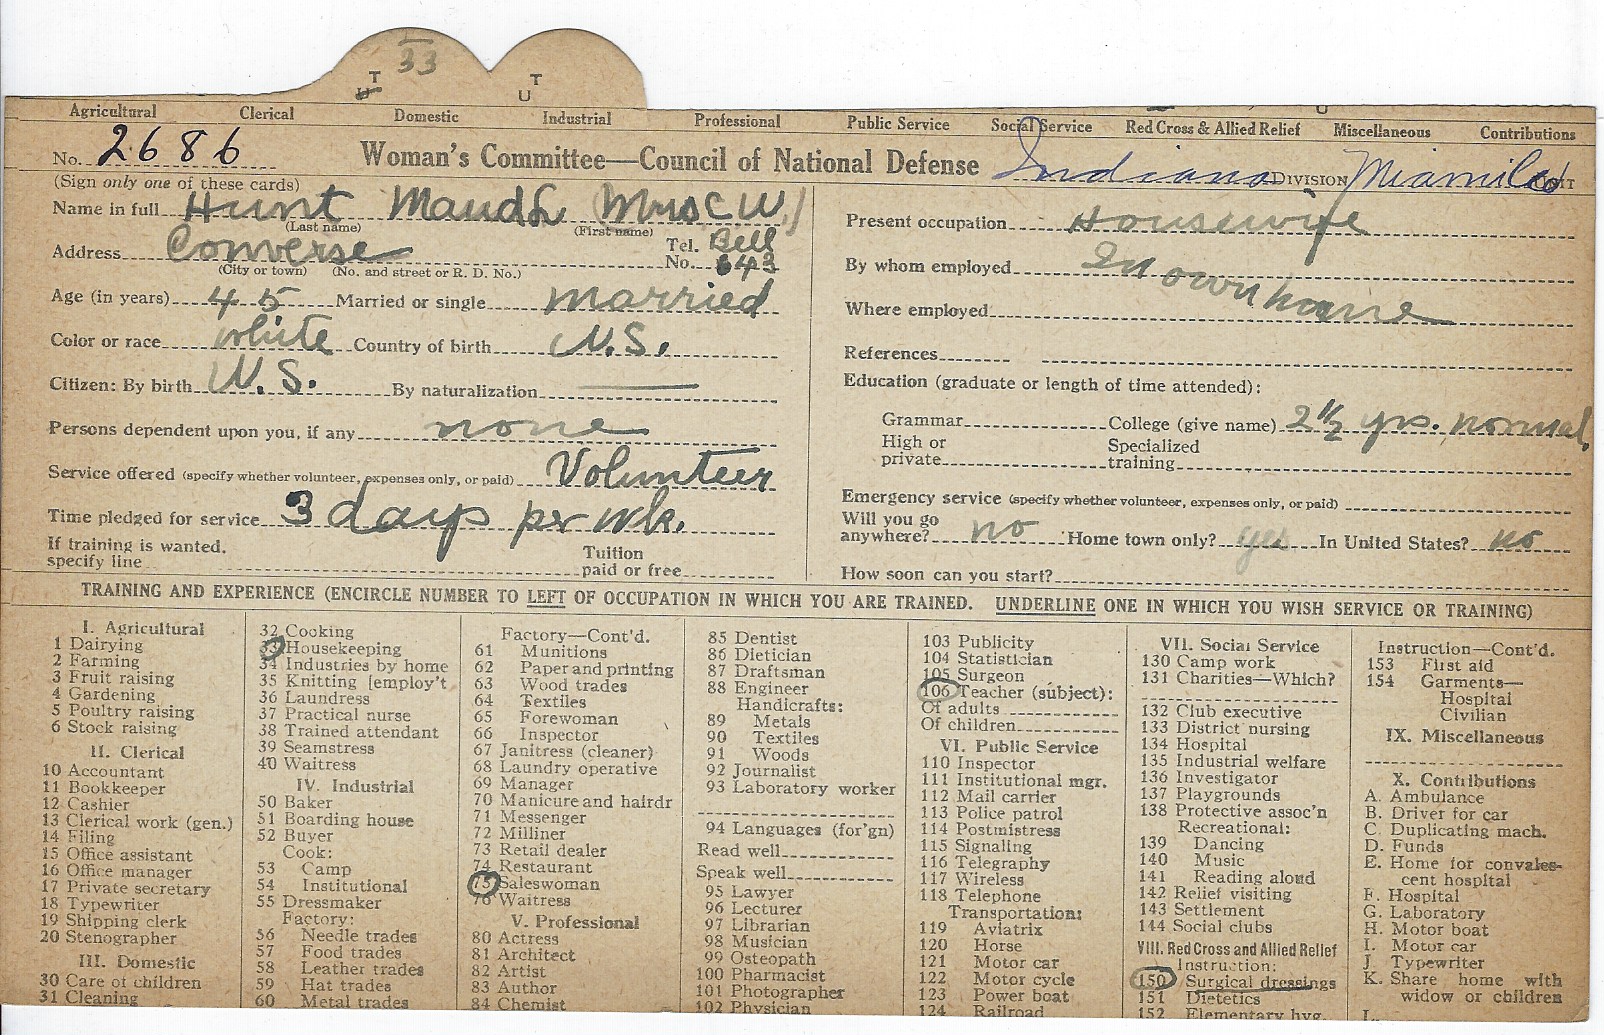 33
T U T U
Agricultural Clerical Domestic Industrial Professional Public Service Social Service Red Cross & Allied Relief Miscellaneous Contributions
No. 2686 Woman's Committee—Council of National Defense Indiana DIVISION Miami Co UNIT
(Sign only one of these cards)
Name in full Hunt Maude (Mrs C W.)
(Last name) (First name)
Address Converse Tel. No. Bell 643
(City or town) (No. and street or R. D. No.)
Age (in years) 45 Married or single married
Color or race white Country of birth U.S.
Citizen: By birth U.S. By naturalization
Persons dependent upon you, if any none
Service offered (specify whether volunteer, expenses only, or paid) Volunteer
Time pledged for service 3 days per wk.
If training is wanted, specify line Tuition paid or free
Present occupation Housewife
By whom employed In own home
Where employed
References
Education (graduate or length of time attended):
Grammar College (give name) 2 1/2 yrs. normal
High or private Specialized training
Emergency service (specify whether volunteer, expenses only, or paid)
Will you go anywhere? no Home town only? yes In United States? no
How soon can you start?
TRAINING AND EXPERIENCE (ENCIRCLE NUMBER TO LEFT OF OCCUPATION IN WHICH YOU ARE TRAINED. UNDERLINE ONE IN WHICH YOU WISH SERVICE OR TRAINING)
I. Agricultural
1 Dairying
2 Farming
3 Fruit raising
4 Gardening
5 Poultry raising
6 Stock raising
II. Clerical
10 Accountant
11 Bookkeeper
12 Cashier
13 Clerical work (gen.)
14 Filing
15 Office assistant
16 Office manager
17 Private secretary
18 Typewriter
19 Shipping clerk
20 Stenographer
III. Domestic
30 Care of children
31 Cleaning
32 Cooking
33 Housekeeping
34 Industries by home
35 Knitting [employ't
36 Laundress
37 Practical nurse
38 Trained attendant
39 Seamstress
40 Waitress
IV. Industrial
50 Baker
51 Boarding house
52 Buyer
Cook:
53 Camp
54 Institutional
55 Dressmaker
Factory:
56 Needle trades
57 Food trades
58 Leather trades
59 Hat trades
60 Metal trades
Factory—Cont'd.
61 Munitions
62 Paper and printing
63 Wood trades
64 Textiles
65 Forewoman
66 Inspector
67 Janitress (cleaner)
68 Laundry operative
69 Manager
70 Manicure and hairdr
71 Messenger
72 Milliner
73 Retail dealer
74 Restaurant
75 Saleswoman
76 Waitress
V. Professional
80 Actress
81 Architect
82 Artist
83 Author
84 Chemist
85 Dentist
86 Dietician
87 Draftsman
88 Engineer
Handicrafts:
89 Metals
90 Textiles
91 Woods
92 Journalist
93 Laboratory worker
94 Languages (for'gn)
Read well
Speak well
95 Lawyer
96 Lecturer
97 Librarian
98 Musician
99 Osteopath
100 Pharmacist
101 Photographer
102 Physician
103 Publicity
104 Statistician
105 Surgeon
106 Teacher (subject):
Of adults
Of children
VI. Public Service
110 Inspector
111 Institutional mgr.
112 Mail carrier
113 Police patrol
114 Postmistress
115 Signaling
116 Telegraphy
117 Wireless
118 Telephone
Transportation:
119 Aviatrix
120 Horse
121 Motor car
122 Motor cycle
123 Power boat
124 Railroad
VII. Social Service
130 Camp work
131 Charities—Which?
132 Club executive
133 District nursing
134 Hospital
135 Industrial welfare
136 Investigator
137 Playgrounds
138 Protective assoc'n
Recreational:
139 Dancing
140 Music
141 Reading aloud
142 Relief visiting
143 Settlement
144 Social clubs
VIII. Red Cross and Allied Relief
Instruction:
150 Surgical dressings
151 Dietetics
152 Elementary hyg.
Instruction—Cont'd.
153 First aid
154 Garments—
Hospital
Civilian
IX. Miscellaneous
X. Contributions
A. Ambulance
B. Driver for car
C. Duplicating mach.
D. Funds
E. Home for convales-
cent hospital
F. Hospital
G. Laboratory
H. Motor boat
I. Motor car
J. Typewriter
K. Share home with
widow or children
L.